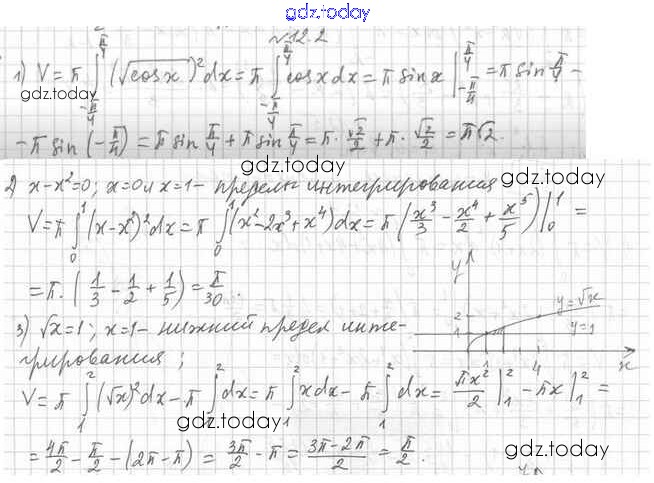 gdz.today
№ 12.2
1) V = π ∫_{-π/4}^{π/4} (√cos x)² dx = π ∫_{-π/4}^{π/4} cos x dx = π sin x |_{-π/4}^{π/4} = π sin π/4 -
gdz.today
- π sin (-π/4) = π sin π/4 + π sin π/4 = π · √2/2 + π · √2/2 = π√2.
gdz.today
2) x - x² = 0; x = 0 и x = 1 - пределы интегрирования
gdz.today
V = π ∫_0^1 (x - x²)² dx = π ∫_0^1 (x² - 2x³ + x⁴) dx = π (x³/3 - x⁴/2 + x⁵/5) |_0^1 =
= π · (1/3 - 1/2 + 1/5) = π/30.
gdz.today
y
2
1
y = √x
y = 1
1
4
x
3) √x = 1; x = 1 - нижний предел инте-
грирования;
V = π ∫_1^2 (√x)² dx - π ∫_1^2 dx = π ∫_1^2 x dx - π · ∫_1^2 dx = πx²/2 |_1^2 - πx |_1^2 =
gdz.today
gdz.today
= 4π/2 - π/2 - (2π - π) = 3π/2 - π = (3π - 2π)/2 = π/2.
gdz.today